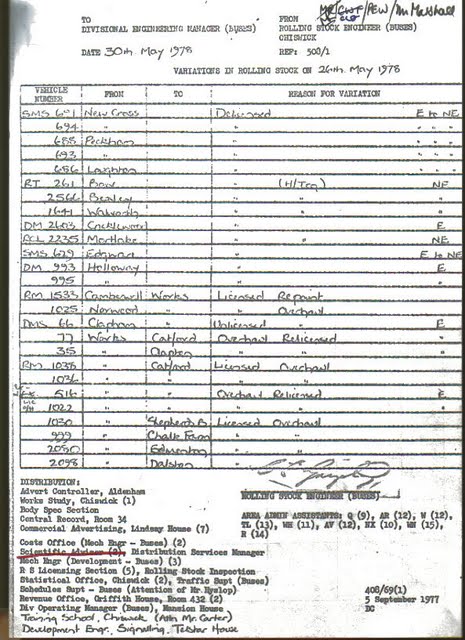 TO
DIVISIONAL ENGINEERING MANAGER (BUSES)
FROM
ROLLING STOCK ENGINEER (BUSES)
CHISWICK
/PEW/Mr Marshall
DATE 30th May 1978
REF: 508/1
VARIATIONS IN ROLLING STOCK ON 26th May 1978
VEHICLE NUMBER FROM TO REASON FOR VARIATION
SMS 691 New Cross Delicensed E to NE
694 " " " " "
688 Peckham " " " "
693 " " " " "
686 Loughton " " " "
RT 261 Bow " (H/Tea) NE
2566 Bexley " " "
1641 Walworth " " "
DM 2603 Cricklewood " E
RCL 2235 Mortlake " NE
SMS 629 Edgware " E to NE
DM 993 Holloway " E
995 " " "
RM 1533 Camberwell Works Licensed Repaint
1025 Norwood " " Overhaul
DMS 66 Clapham " Unlicensed E
77 Works Catford Overhaul Relicensed "
35 " Clapton " " "
RM 1038 " Catford Licensed Overhaul
1036 " " " "
516 " " Overhaul Relicensed E
1022 " " " " "
1030 " Shepherds B. Licensed Overhaul
999 " Chalk Farm " "
2050 " Edmonton " "
2098 " Dalston " "
ROLLING STOCK ENGINEER (BUSES)
DISTRIBUTION:
Advert Controller, Aldenham
Works Study, Chiswick (1)
Body Spec Section
Central Record, Room 34
Commercial Advertising, Lindsay House (7)
AREA ADMIN ASSISTANTS: Q (9), AR (12), W (12),
TL (13), WH (11), AV (12), NX (10), WN (15),
R (14)
Costs Office (Mech Engr - Buses) (2)
Scientific Adviser (2), Distribution Services Manager
Mech Engr (Development - Buses) (3)
R S Licensing Section (5), Rolling Stock Inspection
Statistical Office, Chiswick (2), Traffic Supt (Buses)
Schedules Supt - Buses (Attention of Mr.Hyslop)
Revenue Office, Griffith House, Room 432 (2)
Div Operating Manager (Buses), Mansion House
Training School, Chiswick (Attn Mr. Carter)
Development Engr, Signalling, Telstar House
408/69(1)
5 September 1977
DC